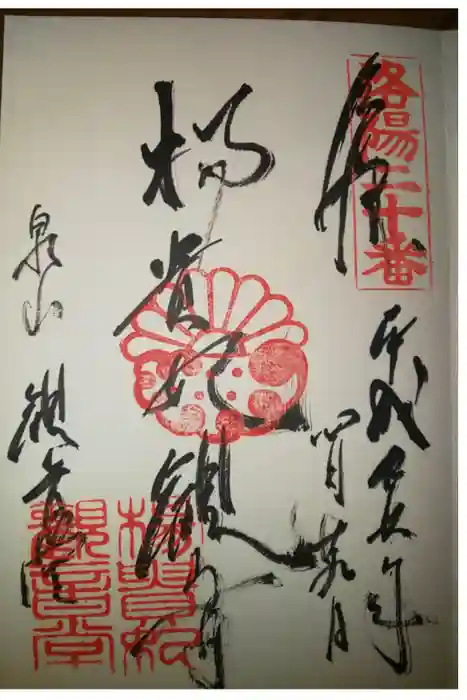 洛陽二十番
奉拝
平成
楊貴妃観音
泉山 観音堂
楊貴妃
観音堂